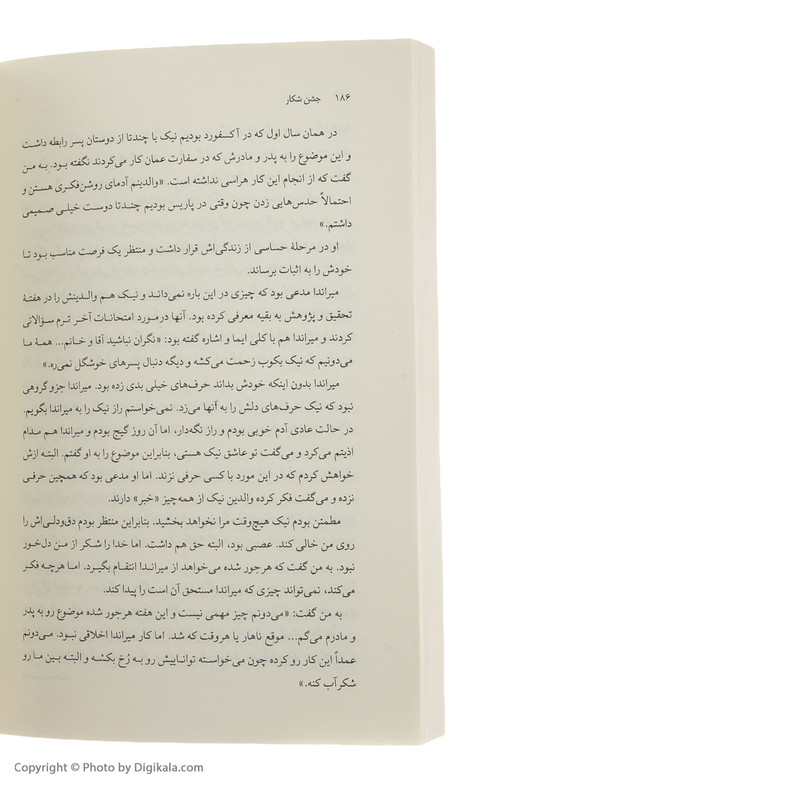 ۱۸۶ جشن شکار
در همان سال اول که در آکسفورد بودیم نیک با چندتا از دوستان پسر رابطه داشت
و این موضوع را به پدر و مادرش که در سفارت عمان کار می‌کردند نگفته بود. به من
گفت که از انجام این کار هراسی نداشته است. «والدینم آدمای روشن‌فکری هستن و
احتمالاً حدس‌هایی زدن چون وقتی در پاریس بودیم چندتا دوست خیلی صمیمی
داشتم.»
او در مرحلهٔ حساسی از زندگی‌اش قرار داشت و منتظر یک فرصت مناسب بود تا
خودش را به اثبات برساند.
میراندا مدعی بود که چیزی در این باره نمی‌داند و نیک هم والدینش را در هفتهٔ
تحقیق و پژوهش به بقیه معرفی کرده بود. آنها درمورد امتحانات آخر ترم سؤالاتی
کردند و میراندا هم با کلی ایما و اشاره گفته بود: «نگران نباشید آقا و خانم... همهٔ ما
می‌دونیم که نیک بکوب زحمت می‌کشه و دیگه دنبال پسرهای خوشگل نمی‌ره.»
میراندا بدون اینکه خودش بداند حرف‌های خیلی بدی زده بود. میراندا جزو گروهی
نبود که نیک حرف‌های دلش را به آنها می‌زد. نمی‌خواستم راز نیک را به میراندا بگویم.
در حالت عادی آدم خوبی بودم و راز نگه‌دار، اما آن روز گیج بودم و میراندا هم مدام
اذیتم می‌کرد و می‌گفت تو عاشق نیک هستی، بنابراین موضوع را به او گفتم. البته ازش
خواهش کردم که در این مورد با کسی حرفی نزند. اما او مدعی بود که همچین حرفی
نزده و می‌گفت فکر کرده والدین نیک از همه‌چیز «خبر» دارند.
مطمئن بودم نیک هیچ‌وقت مرا نخواهد بخشید. بنابراین منتظر بودم دق‌ودلی‌اش را
روی من خالی کند. عصبی بود، البته حق هم داشت. اما خدا را شکر از من دل‌خور
نبود. به من گفت که هرجور شده می‌خواهد از میراندا انتقام بگیرد. اما هرچه فکر
می‌کند، نمی‌تواند چیزی که میراندا مستحق آن است را پیدا کند.
به من گفت: «می‌دونم چیز مهمی نیست و این هفته هرجور شده موضوع رو به پدر
و مادرم می‌گم... موقع ناهار یا هروقت که شد. اما کار میراندا اخلاقی نبود. می‌دونم
عمداً این کار رو کرده چون می‌خواسته تواناییش رو به رُخ بکشه و البته بین ما رو
شکرآب کنه.»
Copyright © Photo by Digikala.com